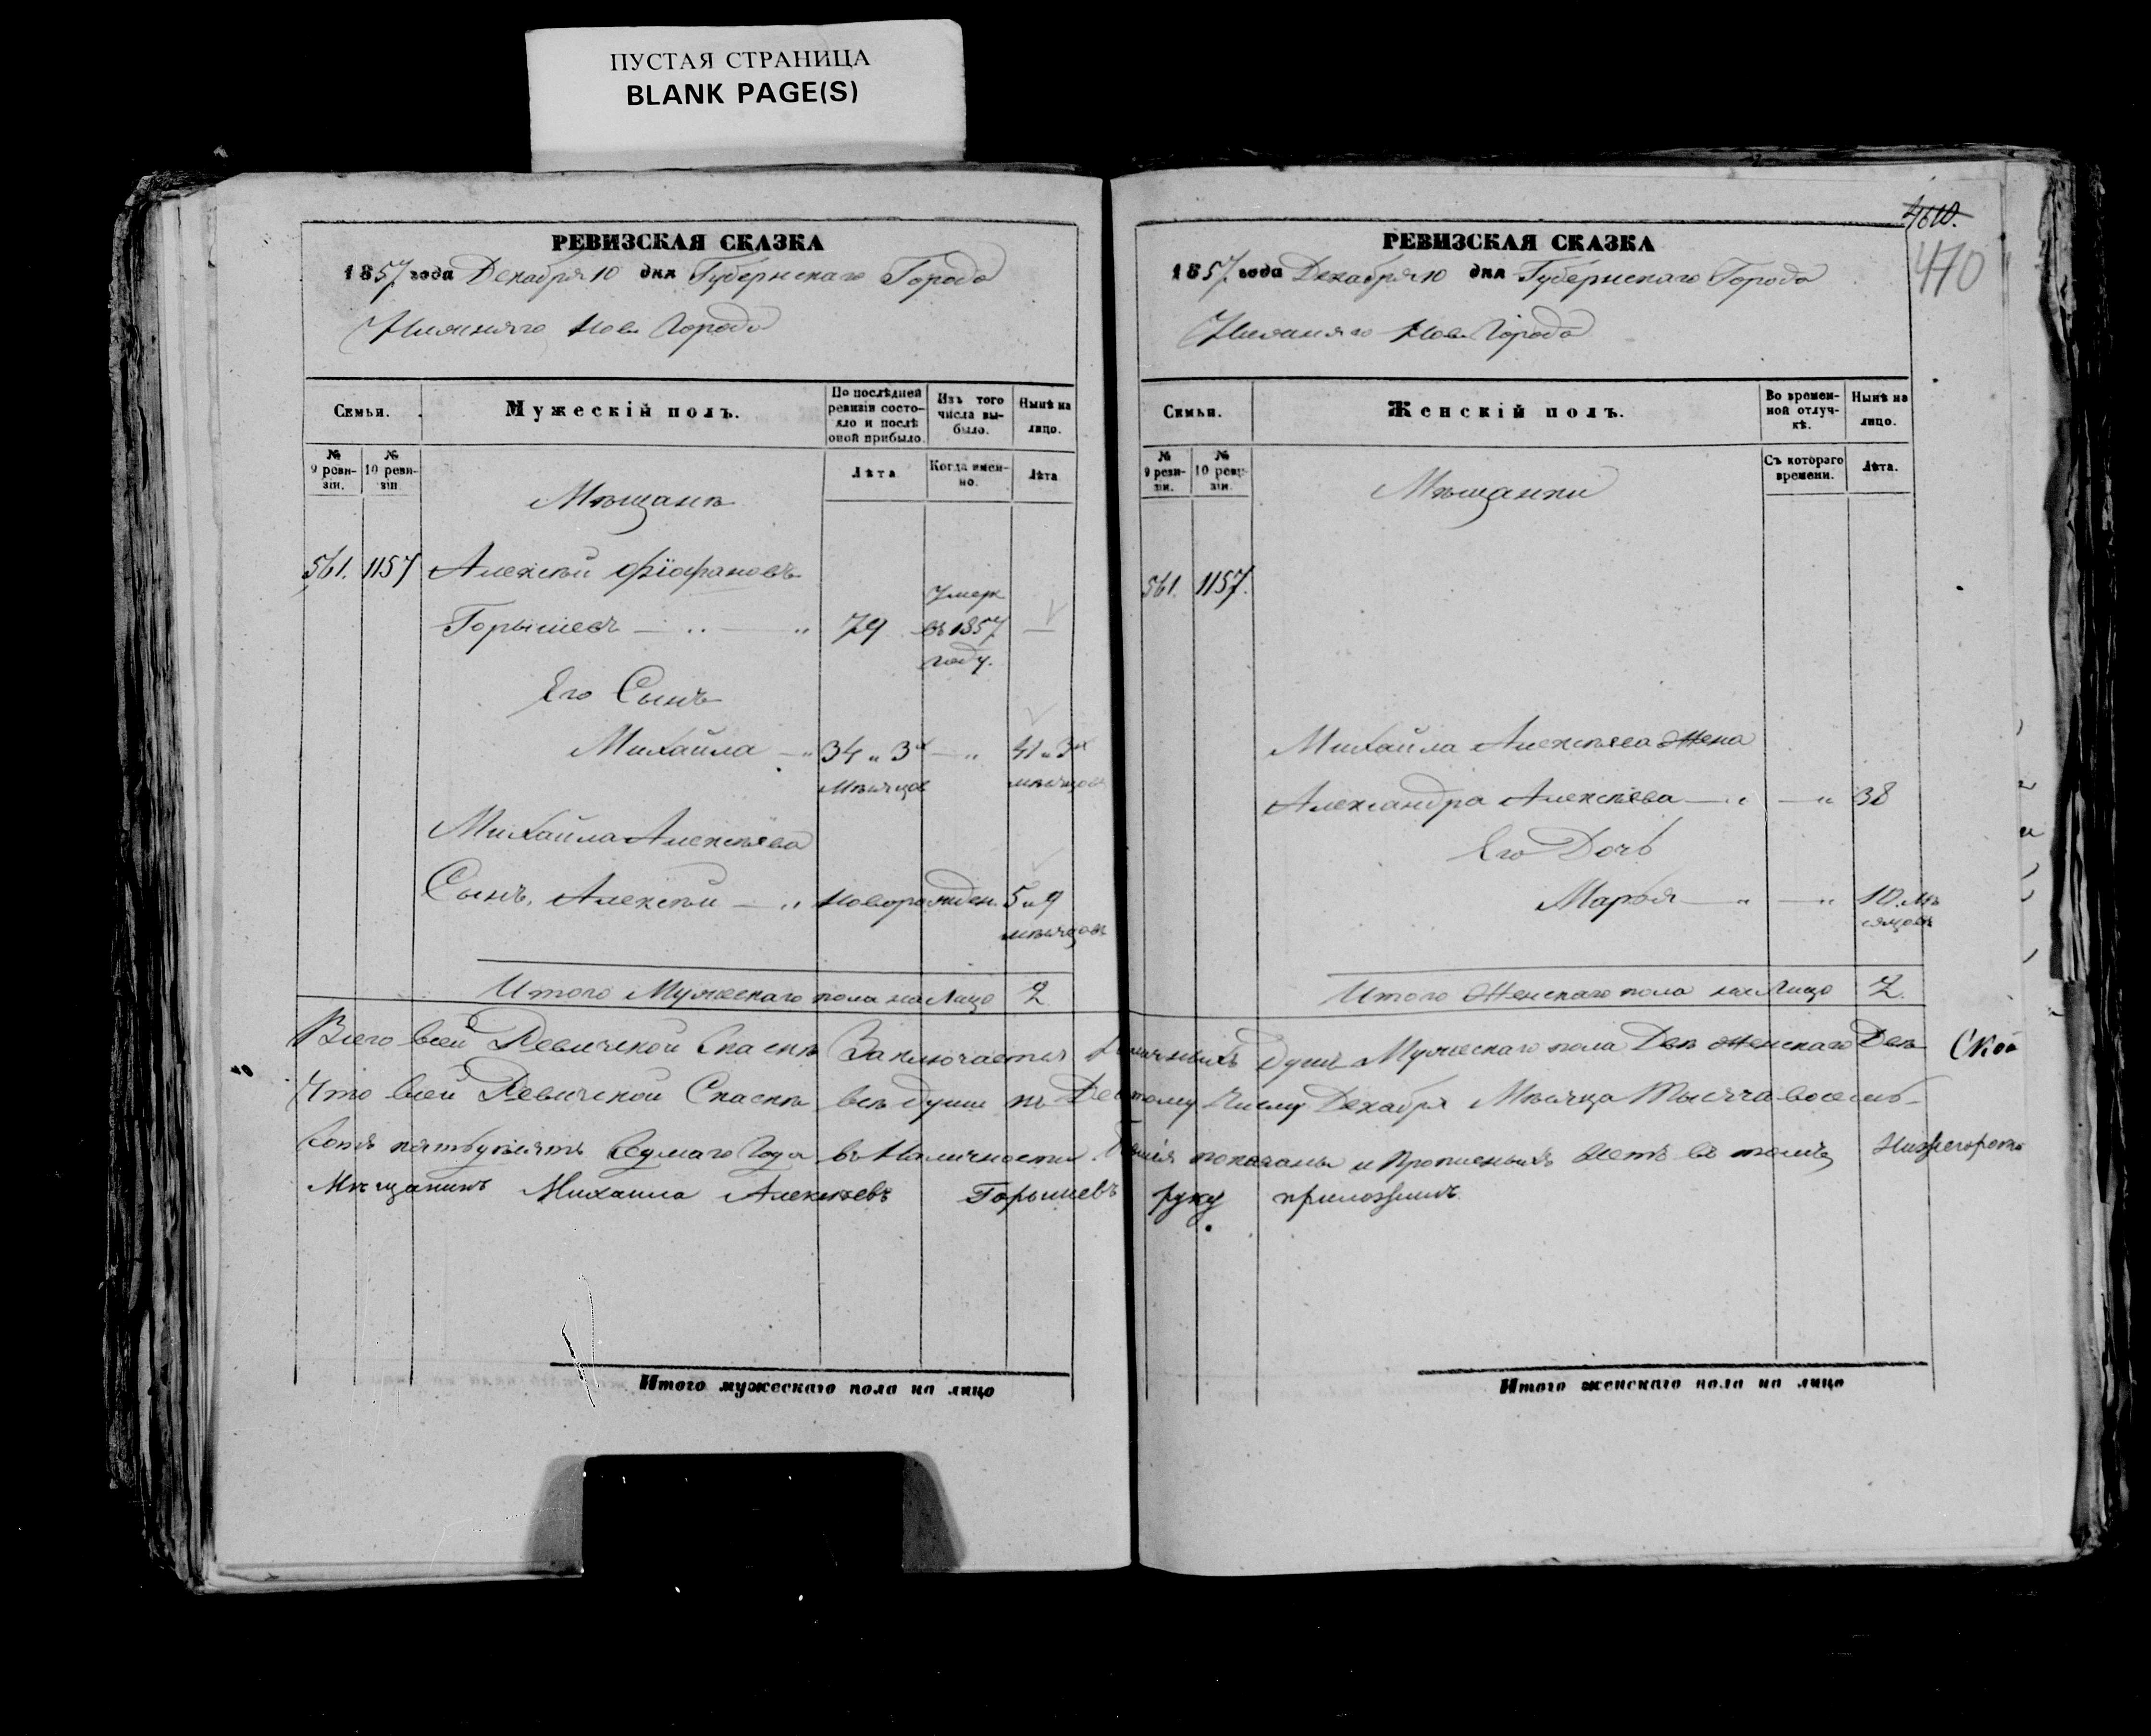 ПУСТАЯ СТРАНИЦА
BLANK PAGE(S)
РЕВИЗСКАЯ СКАЗКА
1857 года Декабря 10 дня Губернскаго Города
Нижняго Нов Города
Семьи.
Мужескій полъ.
По послѣдней ревизіи состояло и послѣ оной прибыло.
Изъ того числа выбыло.
Нынѣ на лицо.
№ 9 ревизіи.
№ 10 ревизіи.
Лѣта
Когда именно.
Лѣта
Мѣщане
561. 1157 Алексѣй Фіофановъ
Горышевъ 79 Умеръ въ 1857 году. —
Его Сынъ
Михайла 34 " 3х мѣсяцов 41 " 3х мѣсяцовъ
Михайла Алексѣева
Сынъ, Алексѣй новорожден. 5 и 9 мѣсяцовъ
Итого Мужескаго пола на Лицо 2
Итого мужескаго пола на лицо
4610.
470
РЕВИЗСКАЯ СКАЗКА
1857 года Декабря 10 дня Губернскаго Города
Нижняго Нов Города
Семьи.
Женскій полъ.
Во временной отлучкѣ.
Нынѣ на лицо.
№ 9 ревизіи.
№ 10 ревизіи.
Съ котораго времени.
Лѣта.
Мѣщанки
561. 1157.
Михайла Алексѣева Жена
Александра Алексѣева 38
Его Дочь
Марья 10. мѣсяцовъ
Итого Женскаго пола на Лицо 2.
Всего всей Ревичской Скаскѣ Заключается Наличныхъ Душъ Мужескаго пола Двѣ Женскаго Двѣ
Что всей Ревичской Скаскѣ всѣ души къ Десятому Числу Декабря Мѣсяца Тысяча восемь
Сотъ пятьдесятъ Седмаго Года въ Наличности показаны и Прописныхъ нетъ въ томъ Нижегородской
Мѣщанинъ Михаила Алексѣевъ Горышевъ руку приложилъ.
Итого женскаго пола на лицо